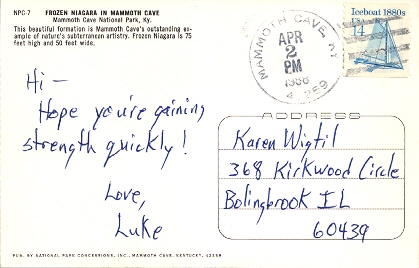 NPC-7 FROZEN NIAGARA IN MAMMOTH CAVE
Mammoth Cave National Park, Ky.
This beautiful formation is Mammoth Cave's outstanding ex-
ample of nature's subterranean artistry. Frozen Niagara is 75
feet high and 50 feet wide.
MAMMOTH CAVE, KY
APR
2
PM
1986
42259
Iceboat 1880s
USA
14
Hi —
Hope you're gaining
strength quickly!
Love,
Luke
ADDRESS
Karen Wigtil
368 Kirkwood Circle
Bolingbrook IL
60439
PUB. BY NATIONAL PARK CONCESSIONS, INC., MAMMOTH CAVE, KENTUCKY, 42259